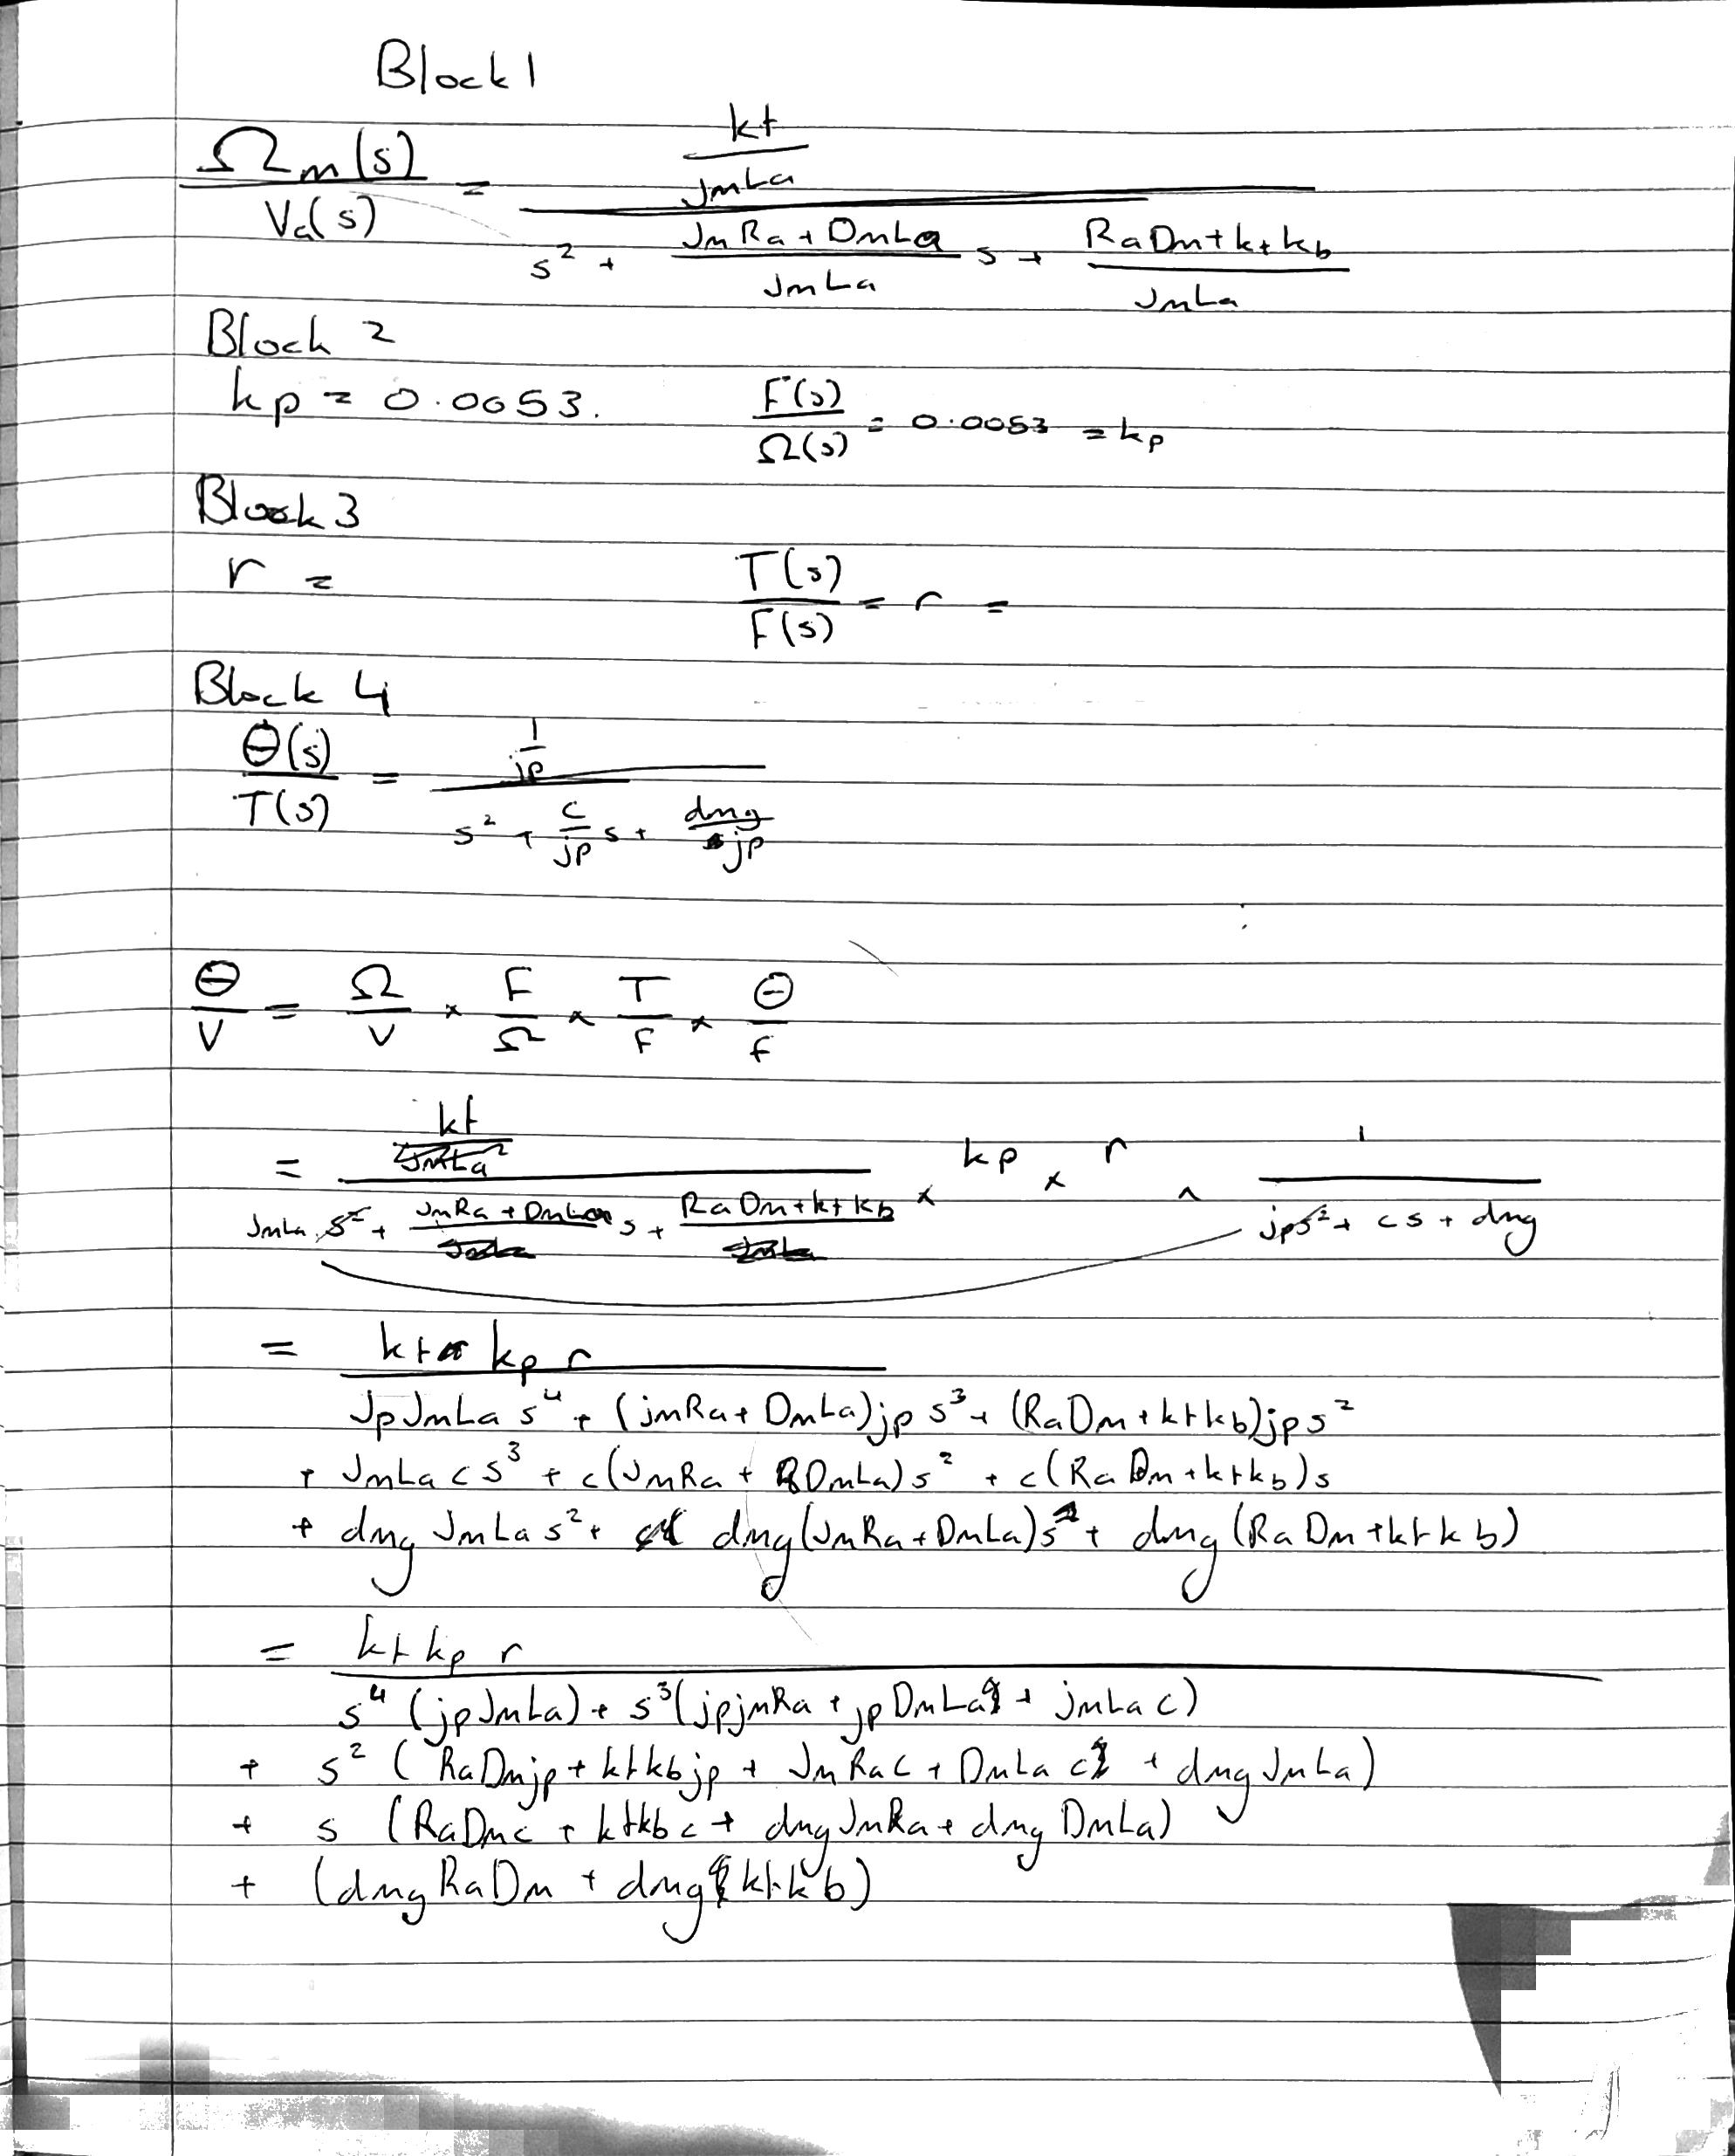 Block 1
Ωm(s)/Va(s) = (kt/JmLa) / (s² + (JmRa + DmLa)/(JmLa) s + (RaDm + ktkb)/(JmLa))
Block 2
kp = 0.0053. F(s)/Ω(s) = 0.0053 = kp
Block 3
r = T(s)/F(s) = r =
Block 4
Θ(s)/T(s) = (1/jp) / (s² + (c/jp) s + dmg/jp)
Θ/V = Ω/V × F/Ω × T/F × Θ/f
= kt / (JmLa s² + JmRa + DmLa s + RaDm + ktkb) × kp × r × 1/(jps² + cs + dmg)
= kt kp r
JpJmLa s⁴ + (jmRa + DmLa)jp s³ + (RaDm + ktkb)jps²
+ JmLa c s³ + c(JmRa + DmLa)s² + c(RaDm + ktkb)s
+ dmg JmLa s² + dmg(JmRa + DmLa)s + dmg(RaDm + ktkb)
= kt kp r
s⁴ (jpJmLa) + s³(jpjmRa + jpDmLa + jmLa c)
+ s² (RaDmjp + ktkbjp + JmRac + DmLa c + dmgJmLa)
+ s (RaDmc + ktkbc + dmgJmRa + dmg DmLa)
+ (dmgRaDm + dmgktkb)